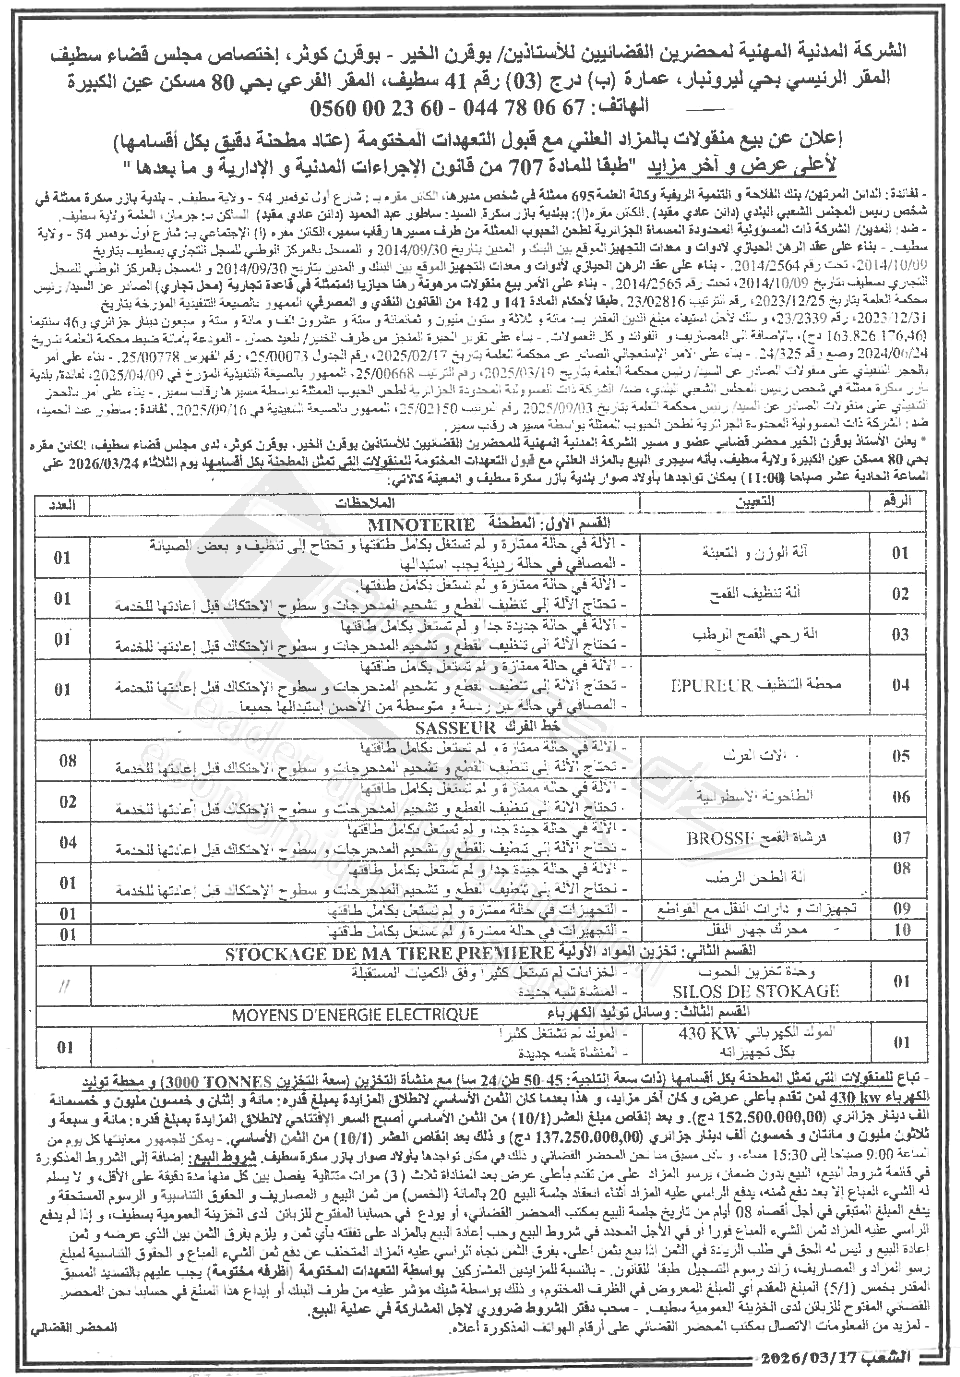 الشركة المدنية المهنية لمحضرين القضائيين للأستاذين/ بوقرن الخير - بوقرن كوثر، إختصاص مجلس قضاء سطيف
المقر الرئيسي بحي ليرونبار، عمارة (ب) درج (03) رقم 41 سطيف، المقر الفرعي بحي 80 مسكن عين الكبيرة
الهاتف: 67 06 78 044 - 60 23 00 0560
إعلان عن بيع منقولات بالمزاد العلني مع قبول التعهدات المختومة (عتاد مطحنة دقيق بكل أقسامها)
لأعلى عرض و آخر مزايد "طبقا للمادة 707 من قانون الإجراءات المدنية و الإدارية و ما بعدها"
- لفائدة: الدائن المرتهن/ بنك الفلاحة و التنمية الريفية وكالة العلمة 695 ممثلة في شخص مديرها، الكائن مقره بـ: شارع أول نوفمبر 54 - ولاية سطيف. - بلدية بازر سكرة ممثلة في
شخص رئيس المجلس الشعبي البلدي (دائن عادي مقيد). الكائن مقره (ا): ببلدية بازر سكرة. السيد: ساطور عبد الحميد (دائن عادي مقيد) الساكن بـ: جرمان، العلمة ولاية سطيف.
- ضد: المدين/ الشركة ذات المسؤولية المحدودة المسماة الجزائرية لطحن الحبوب الممثلة من طرف مسيرها رقاب سمير، الكائن مقره (ا) الإجتماعي بـ: شارع أول نوفمبر 54 - ولاية
سطيف. - بناء على عقد الرهن الحيازي لأدوات و معدات التجهيز الموقع بين البنك و المدين بتاريخ 2014/09/30 و المسجل بالمركز الوطني للسجل التجاري بسطيف بتاريخ
2014/10/09، تحت رقم 2014/2564. - بناء على عقد الرهن الحيازي لأدوات و معدات التجهيز الموقع بين البنك و المدين بتاريخ 2014/09/30 و المسجل بالمركز الوطني للسجل
التجاري بسطيف بتاريخ 2014/10/09، تحت رقم 2014/2565. - بناء على الأمر ببيع منقولات مرهونة رهنا حيازيا المتمثلة في قاعدة تجارية (محل تجاري) الصادر عن السيد/ رئيس
محكمة العلمة بتاريخ 2023/12/25، رقم الترتيب 23/02816. طبقا لأحكام المادة 141 و 142 من القانون النقدي و المصرفي الممهور بالصيغة التنفيذية المؤرخة بتاريخ
2023/12/31، رقم 23/2339، و ذلك لأجل استيفاء مبلغ الدين المقدر بـ: مائة و ثلاثة و ستون مليون و ثمانمائة و ستة و عشرون ألف و مائة و ستة و سبعون دينار جزائري و46 سنتيما
(163.826.176,46 دج)، بالإضافة إلى المصاريف و الفوائد و كل العمولات. - بناء على تقرير الخبرة المنجز من طرف الخبير/ بلعيد حسان، المودعة بأمانة ضبط محكمة العلمة بتاريخ
2024/06/24 وضع رقم 24/325. - بناء على الأمر الإستعجالي الصادر عن محكمة العلمة بتاريخ 2025/02/17، رقم الجدول 25/00073، رقم الفهرس 25/00778. - بناء على أمر
بالحجز التنفيذي على منقولات الصادر عن السيد/ رئيس محكمة العلمة بتاريخ 2025/03/19، رقم الترتيب 25/00668، الممهور بالصيغة التنفيذية المؤرخ في 2025/04/09، لفائدة/ بلدية
بازر سكرة ممثلة في شخص رئيس المجلس الشعبي البلدي، ضد/ الشركة ذات المسؤولية المحدودة الجزائرية لطحن الحبوب الممثلة بواسطة مسيرها رقاب سمير. - بناء على أمر بالحجز
التنفيذي على منقولات الصادر عن السيد/ رئيس محكمة العلمة بتاريخ 2025/09/03 رقم الترتيب 25/02150، الممهور بالصيغة التنفيذية في 2025/09/16. لفائدة: ساطور عبد الحميد،
ضد: الشركة ذات المسؤولية المحدودة الجزائرية لطحن الحبوب الممثلة بواسطة مسيرها رقاب سمير.
* يعلن الأستاذ بوقرن الخير محضر قضائي عضو و مسير الشركة المدنية المهنية للمحضرين القضائيين للأستاذين بوقرن الخير، بوقرن كوثر، لدى مجلس قضاء سطيف، الكائن مقره
بحي 80 مسكن عين الكبيرة ولاية سطيف، بأنه سيجرى البيع بالمزاد العلني مع قبول التعهدات المختومة للمنقولات التي تمثل المطحنة بكل أقسامها، يوم الثلاثاء 2026/03/24 على
الساعة الحادية عشر صباحا (11:00) بمكان تواجدها بأولاد صوار بلدية بازر سكرة سطيف و المعينة كالآتي:
الرقم التعيين الملاحظات العدد
القسم الأول: المطحنة MINOTERIE
01 آلة الوزن و التعبئة - الآلة في حالة ممتازة و لم تستغل بكامل طاقتها و تحتاج إلى تنظيف و بعض الصيانة 01
- المصافي في حالة رديئة يجب استبدالها
02 آلة تنظيف القمح - الآلة في حالة ممتازة و لم تستعل بكامل طاقتها. 01
- تحتاج الآلة إلى تنظيف القطع و تشحيم المدحرجات و سطوح الإحتكاك قبل إعادتها للخدمة
03 آلة رحي القمح الرطب - الآلة في حالة جديدة جدا و لم تستعل بكامل طاقتها 01
- تحتاج الآلة إلى تنظيف القطع و تشحيم المدحرجات و سطوح الإحتكاك قبل إعادتها للخدمة
04 محطة التنظيف EPUREUR - الآلة في حالة ممتازة و لم تستعل بكامل طاقتها 01
- تحتاج الآلة إلى تنظيف القطع و تشحيم المدحرجات و سطوح الإحتكاك قبل إعادتها للخدمة
- المصافي في حالة بين رديئة و متوسطة من الأحسن إستبدالها جميعا
خط الفرك SASSEUR
05 آلات الفرك - الآلة في حالة ممتازة و لم تستعل بكامل طاقتها 08
- تحتاج الآلة إلى تنظيف القطع و تشحيم المدحرجات و سطوح الإحتكاك قبل إعادتها للخدمة
06 الطاحونة الأسطوانية - الآلة في حالة ممتازة و لم تستعل بكامل طاقتها 02
- تحتاج الآلة إلى تنظيف القطع و تشحيم المدحرجات و سطوح الإحتكاك قبل إعادتها للخدمة
07 فرشاة القمح BROSSE - الآلة في حالة جيدة جدا و لم تستعل بكامل طاقتها 04
- تحتاج الآلة إلى تنظيف القطع و تشحيم المدحرجات و سطوح الإحتكاك قبل إعادتها للخدمة
08 آلة الطحن الرطب - الآلة في حالة جيدة جدا و لم تستعل بكامل طاقتها 01
- تحتاج الآلة إلى تنظيف القطع و تشحيم المدحرجات و سطوح الإحتكاك قبل إعادتها للخدمة
09 تجهيزات و دارات النقل مع القواطع - التجهيزات في حالة ممتازة و لم تستعل بكامل طاقتها 01
10 محرك جهاز النقل - التجهيزات في حالة ممتازة و لم تستعل بكامل طاقتها 01
القسم الثاني: تخزين المواد الأولية STOCKAGE DE MATIERE PREMIERE
01 وحدة تخزين الحبوب - الخزانات لم تستعل كثيرا وفق الكميات المستقبلة 11
SILOS DE STOKAGE - المنشأة شبه جديدة
القسم الثالث: وسائل توليد الكهرباء MOYENS D'ENERGIE ELECTRIQUE
01 المولد الكهربائي 430 KW - المولد لم تشتغل كثيرا 01
بكل تجهيزاته - المنشأة شبه جديدة
- تباع للمنقولات التي تمثل المطحنة بكل أقسامها (ذات سعة إنتاجية: 45-50 طن/24 سا) مع منشأة التخزين (سعة التخزين 3000 TONNES) و محطة توليد
الكهرباء 430 kw لمن تقدم بأعلى عرض و كان آخر مزايد، و هذا بعدما كان الثمن الأساسي لانطلاق المزايدة بمبلغ قدره: مائة و إثنان و خمسون مليون و خمسمائة
ألف دينار جزائري (152.500.000,00 دج). و بعد إنقاص مبلغ العشر (10/1) من الثمن الأساسي أصبح السعر الإفتتاحي لانطلاق المزايدة بمبلغ قدره: مائة و سبعة و
ثلاثون مليون و مائتان و خمسون ألف دينار جزائري (137.250.000,00 دج) و ذلك بعد إنقاص العشر (10/1) من الثمن الأساسي. - يمكن للجمهور معاينتها كل يوم من
الساعة 9:00 صباحا إلى 15:30 مساء، و بإذن مسبق منا نحن المحضر القضائي و ذلك في مكان تواجدها بأولاد صوار بازر سكرة سطيف. شروط البيع: إضافة إلى الشروط المذكورة
في قائمة شروط البيع، البيع بدون ضمان، يرسو المزاد على من تقدم بأعلى عرض بعد المناداة ثلاث (3) مرات متتالية يفصل بين كل منها مدة دقيقة على الأقل، و لا يسلم
له الشيء المباع إلا بعد دفع ثمنه، يدفع الراسي عليه المزاد أثناء انعقاد جلسة البيع 20 بالمائة (الخمس) من ثمن البيع و المصاريف و الحقوق التناسبية و الرسوم المستحقة و
يدفع المبلغ المتبقي في أجل أقصاه 08 أيام من تاريخ جلسة البيع بمكتب المحضر القضائي، أو يودع في حسابنا المفتوح للزبائن لدى الخزينة العمومية بسطيف، و إذا لم يدفع
الراسي عليه المزاد ثمن الشيء المباع فورا أو في الأجل المحدد في شروط البيع وجب إعادة البيع بالمزاد على نفقته بأي ثمن و يلزم بفرق الثمن بين الذي عرضه و ثمن
إعادة البيع و ليس له الحق في طلب الزيادة في الثمن إذا بيع بثمن أعلى، بفرق الثمن تجاه الراسي عليه المزاد المتخلف عن دفع ثمن الشيء المباع و الحقوق التناسبية لمبلغ
رسو المزاد و المصاريف، زائد رسوم التسجيل، طبقا للقانون. - بالنسبة للمزايدين المشاركين بواسطة التعهدات المختومة (اظرفه مختومة) يجب عليهم بالتسديد المسبق
المقدر بخمس (5/1) المبلغ المقدم أي المبلغ المعروض في الظرف المختوم، و ذلك بواسطة شيك مؤشر عليه من طرف البنك أو إيداع هذا المبلغ في حسابنا نحن المحضر
القضائي المفتوح للزبائن لدى الخزينة العمومية سطيف. - سحب دفتر الشروط ضروري لأجل المشاركة في عملية البيع.
- لمزيد من المعلومات الاتصال بمكتب المحضر القضائي على أرقام الهواتف المذكورة أعلاه.
المحضر القضائي
الشعب 2026/03/17